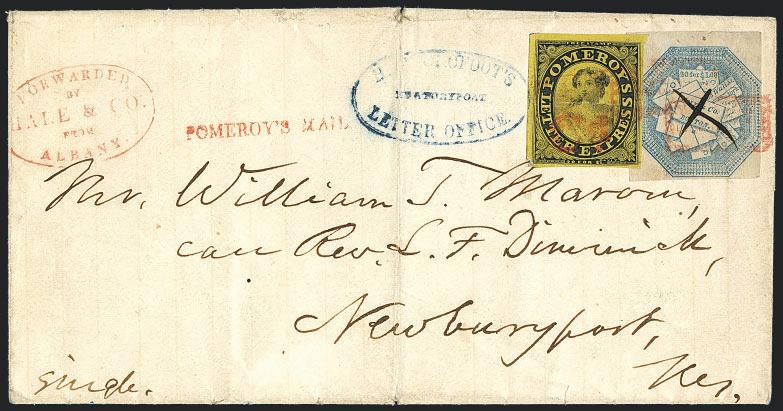 FORWARDED
BY
HALE & CO.
FROM
ALBANY.
POMEROY'S MAIL
FOOT'S
NEWBURYPORT
LETTER OFFICE.
POMEROY'S
LETTER EXPRESS
20 for $1.00
Mr. William T.
care Rev. L. F. Dimmick,
Newburyport,
single.